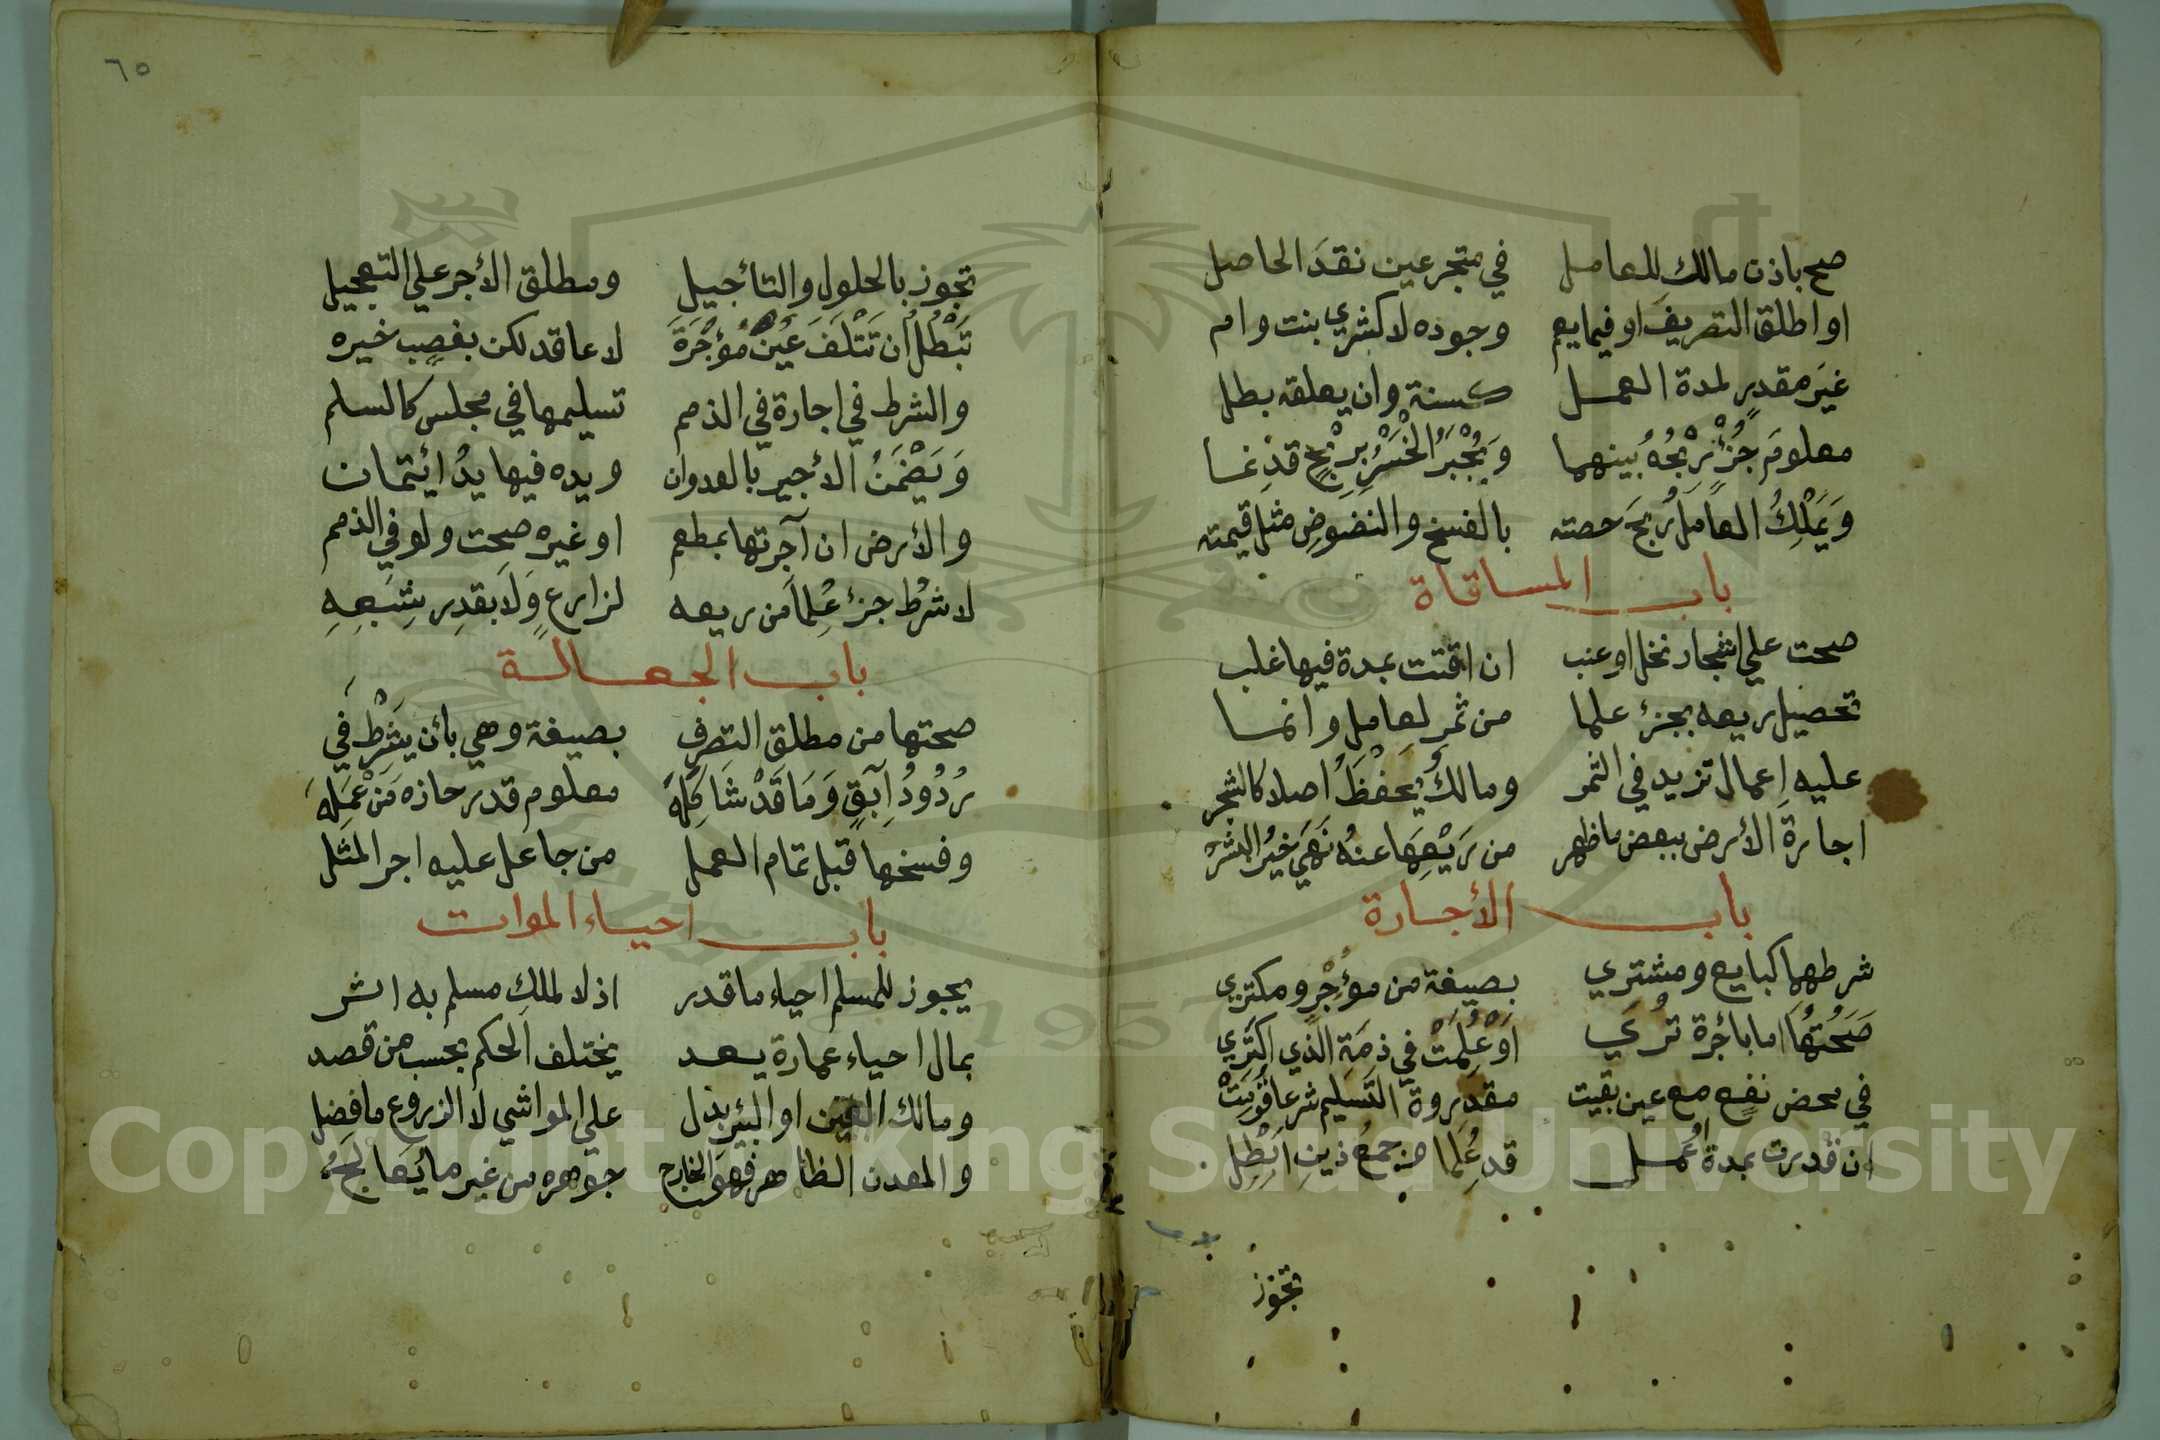 صح باذن مالك للعامل في متجر عين نقد الحاصل
او اطلق التصريف او فيما يعم وجوده لا كشري بنت وام
غير مقدر لمدة العمل كسنة وان يعلقه بطل
معلوم جزء ربحه بينهما ويجبر الخسر بربح قد نما
ويملك العامل ربح حصته بالفسخ والنضوض مثل قيمته
باب المساقاة
صحت علي اشجار نخل او عنب ان اقتت بمدة فيها غلب
تحصيل ريعه بجزء علما من ثمر لعامل وانما
عليه اعمال تزيد في الثمر ومالك يحفظ اصلا كالشجر
اجارة الأرض ببعض ما ظهر من ريعها عنه نهي خير البشر
باب الأجارة
شرطهما كبايع ومشتري بصيغة من مؤجر ومكتري
صحتها اما بأجرة تري او علمت في ذمة الذي اكتري
في محض نفع مع عين بقيت مقدورة التسليم شرعا قومت
ان قدرت بمدة او عمل قد علما وجمع ذين ابطل
تجوز
٦٥
تجوز بالحلول والتأجيل ومطلق الأجر علي التعجيل
تبطل ان تتلف عين مؤجرة لا عاقد لكن بغصب خيره
والشرط في اجارة في الذمم تسليمها في مجلس كالسلم
ويضمن الأجير بالعدوان ويده فيها يد ائتمان
والأرض ان آجرتها بمطعم او غيره صحت ولو في الذمم
لا شرط جزء علما من ريعه لزارع ولا بقدر شبعه
باب الجعالة
صحتها من مطلق التصرف بصيغة وهي بأن يشرط في
ردود آبق وما قد شاكله معلوم قدر حازه من عمله
وفسخها قبل تمام العمل من جاعل عليه اجر المثل
باب احياء الموات
يجوز للمسلم احياء ما قدر اذ لا لملك مسلم به اثر
بمال احياء عمارة يعد يختلف الحكم بحسب من قصد
ومالك العين او البئر بذل علي المواشي لا الزروع ما فضل
والمعدن الظاهر فهو الخارج جوهره من غير ما يعالج